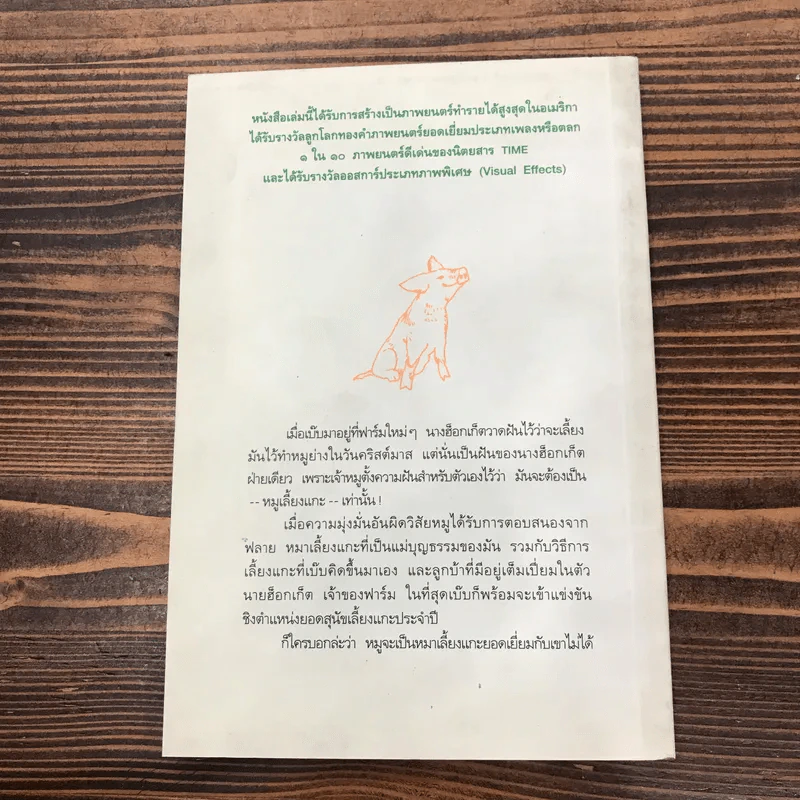 หนังสือเล่มนี้ได้รับการสร้างเป็นภาพยนตร์ทำรายได้สูงสุดในอเมริกา
ได้รับรางวัลลูกโลกทองคำภาพยนตร์ยอดเยี่ยมประเภทเพลงหรือตลก
๑ ใน ๑๐ ภาพยนตร์ดีเด่นของนิตยสาร TIME
และได้รับรางวัลออสการ์ประเภทภาพพิเศษ (Visual Effects)
เมื่อเบ๊บมาอยู่ที่ฟาร์มใหม่ๆ นางฮ็อกเก็ตวาดฝันไว้ว่าจะเลี้ยง
มันไว้ทำหมูย่างในวันคริสต์มาส แต่นั่นเป็นฝันของนางฮ็อกเก็ต
ฝ่ายเดียว เพราะเจ้าหมูตั้งความฝันสำหรับตัวเองไว้ว่า มันจะต้องเป็น
-- หมูเลี้ยงแกะ -- เท่านั้น !
เมื่อความมุ่งมั่นอันผิดวิสัยหมูได้รับการตอบสนองจาก
ฟลาย หมาเลี้ยงแกะที่เป็นแม่บุญธรรมของมัน รวมกับวิธีการ
เลี้ยงแกะที่เบ๊บคิดขึ้นมาเอง และลูกบ้าที่มีอยู่เต็มเปี่ยมในตัว
นายฮ็อกเก็ต เจ้าของฟาร์ม ในที่สุดเบ๊บก็พร้อมจะเข้าแข่งขัน
ชิงตำแหน่งยอดสุนัขเลี้ยงแกะประจำปี
ก็ใครบอกล่ะว่า หมูจะเป็นหมาเลี้ยงแกะยอดเยี่ยมกับเขาไม่ได้